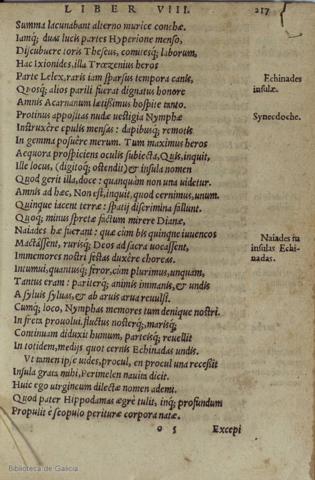 LIBER VIII. 217
Summa lacunabant alterno murice conchæ.
Iamq; duas lucis partes Hyperione menso,
Discubuere toris Theseus, comitesq; laborum,
Hac Ixionides, illa Trœzenius heros
Parte Lelex, raris iam sparsus tempora canis,
Quosq; alios parili fuerat dignatus honore
Amnis Acarnanum lætissimus hospite tanto.
Protinus appositas nudæ vestigia Nymphæ
Instruxêre epulis mensas: dapibusq; remotis
In gemma posuêre merum. Tum maximus heros
Aequora prospiciens oculis subiecta, Quis, inquit,
Ille locus, (digitoq; ostendit) & insula nomen
Quod gerit illa, doce: quanquam non una uidetur.
Amnis ad hæc, Non est, inquit, quod cernimus, unum.
Quinque iacent terræ: spatij discrimina fallunt.
Quoq; minus spretæ factum mirere Dianæ,
Naiades hæ fuerant: quæ cùm bis quinque iuuencos
Mactâssent, rurisq; Deos ad sacra uocassent,
Immemores nostri festas duxêre choreas.
Intumui, quantusq; feror, cùm plurimus, unquam,
Tantus eram: pariterq; animis immanis, & undis
A syluis syluas, & ab aruis arua reuulsi.
Cumq; loco, Nymphas memores tum denique nostri,
In freta prouolui. fluctus nosterq;, marisq;
Continuam diduxit humum, parteisq; reuellit
In totidem, medijs quot cernis Echinadas undis.
Vt tamen ipse uides, procul, en procul una recessit
Insula grata mihi, Perimelen nauita dicit.
Huic ego uirgineum dilectæ nomen ademi.
Quod pater Hippodamas ægrè tulit, inq; profundum
Propulit è scopulo perituræ corpora natæ.
o 5 Excepi
Echinades
insulæ.
Synecdoche.
Naiades in
insulas Echi-
nadas.
Biblioteca de Galicia